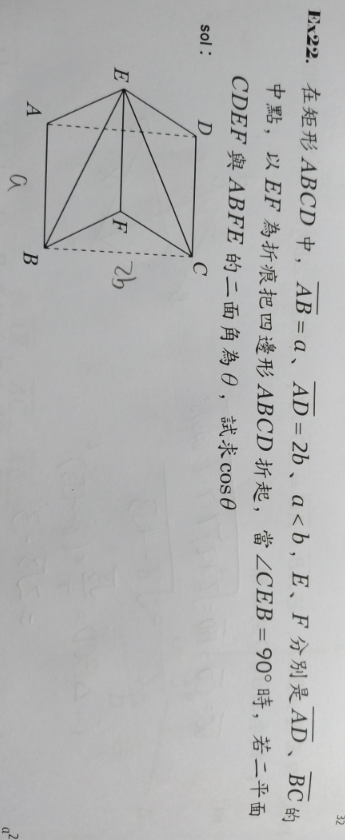 32
Ex22. 在矩形ABCD中，AB=a、AD=2b、a<b，E、F分別是AD、BC的
中點，以EF為折痕把四邊形ABCD折起，當∠CEB=90°時，若二平面
CDEF與ABFE的二面角為θ，試求cosθ
sol：
D
C
E
F
2b
A
B
a
a²